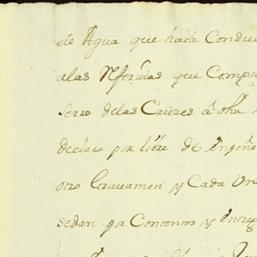 de Agua que hará Condu
alas Referidas que Comp
Serro delas Cruzes á dha
declaro por libre de Enpeño
otro Gravamen y Cada Un
sedan por Contentos y Entreg